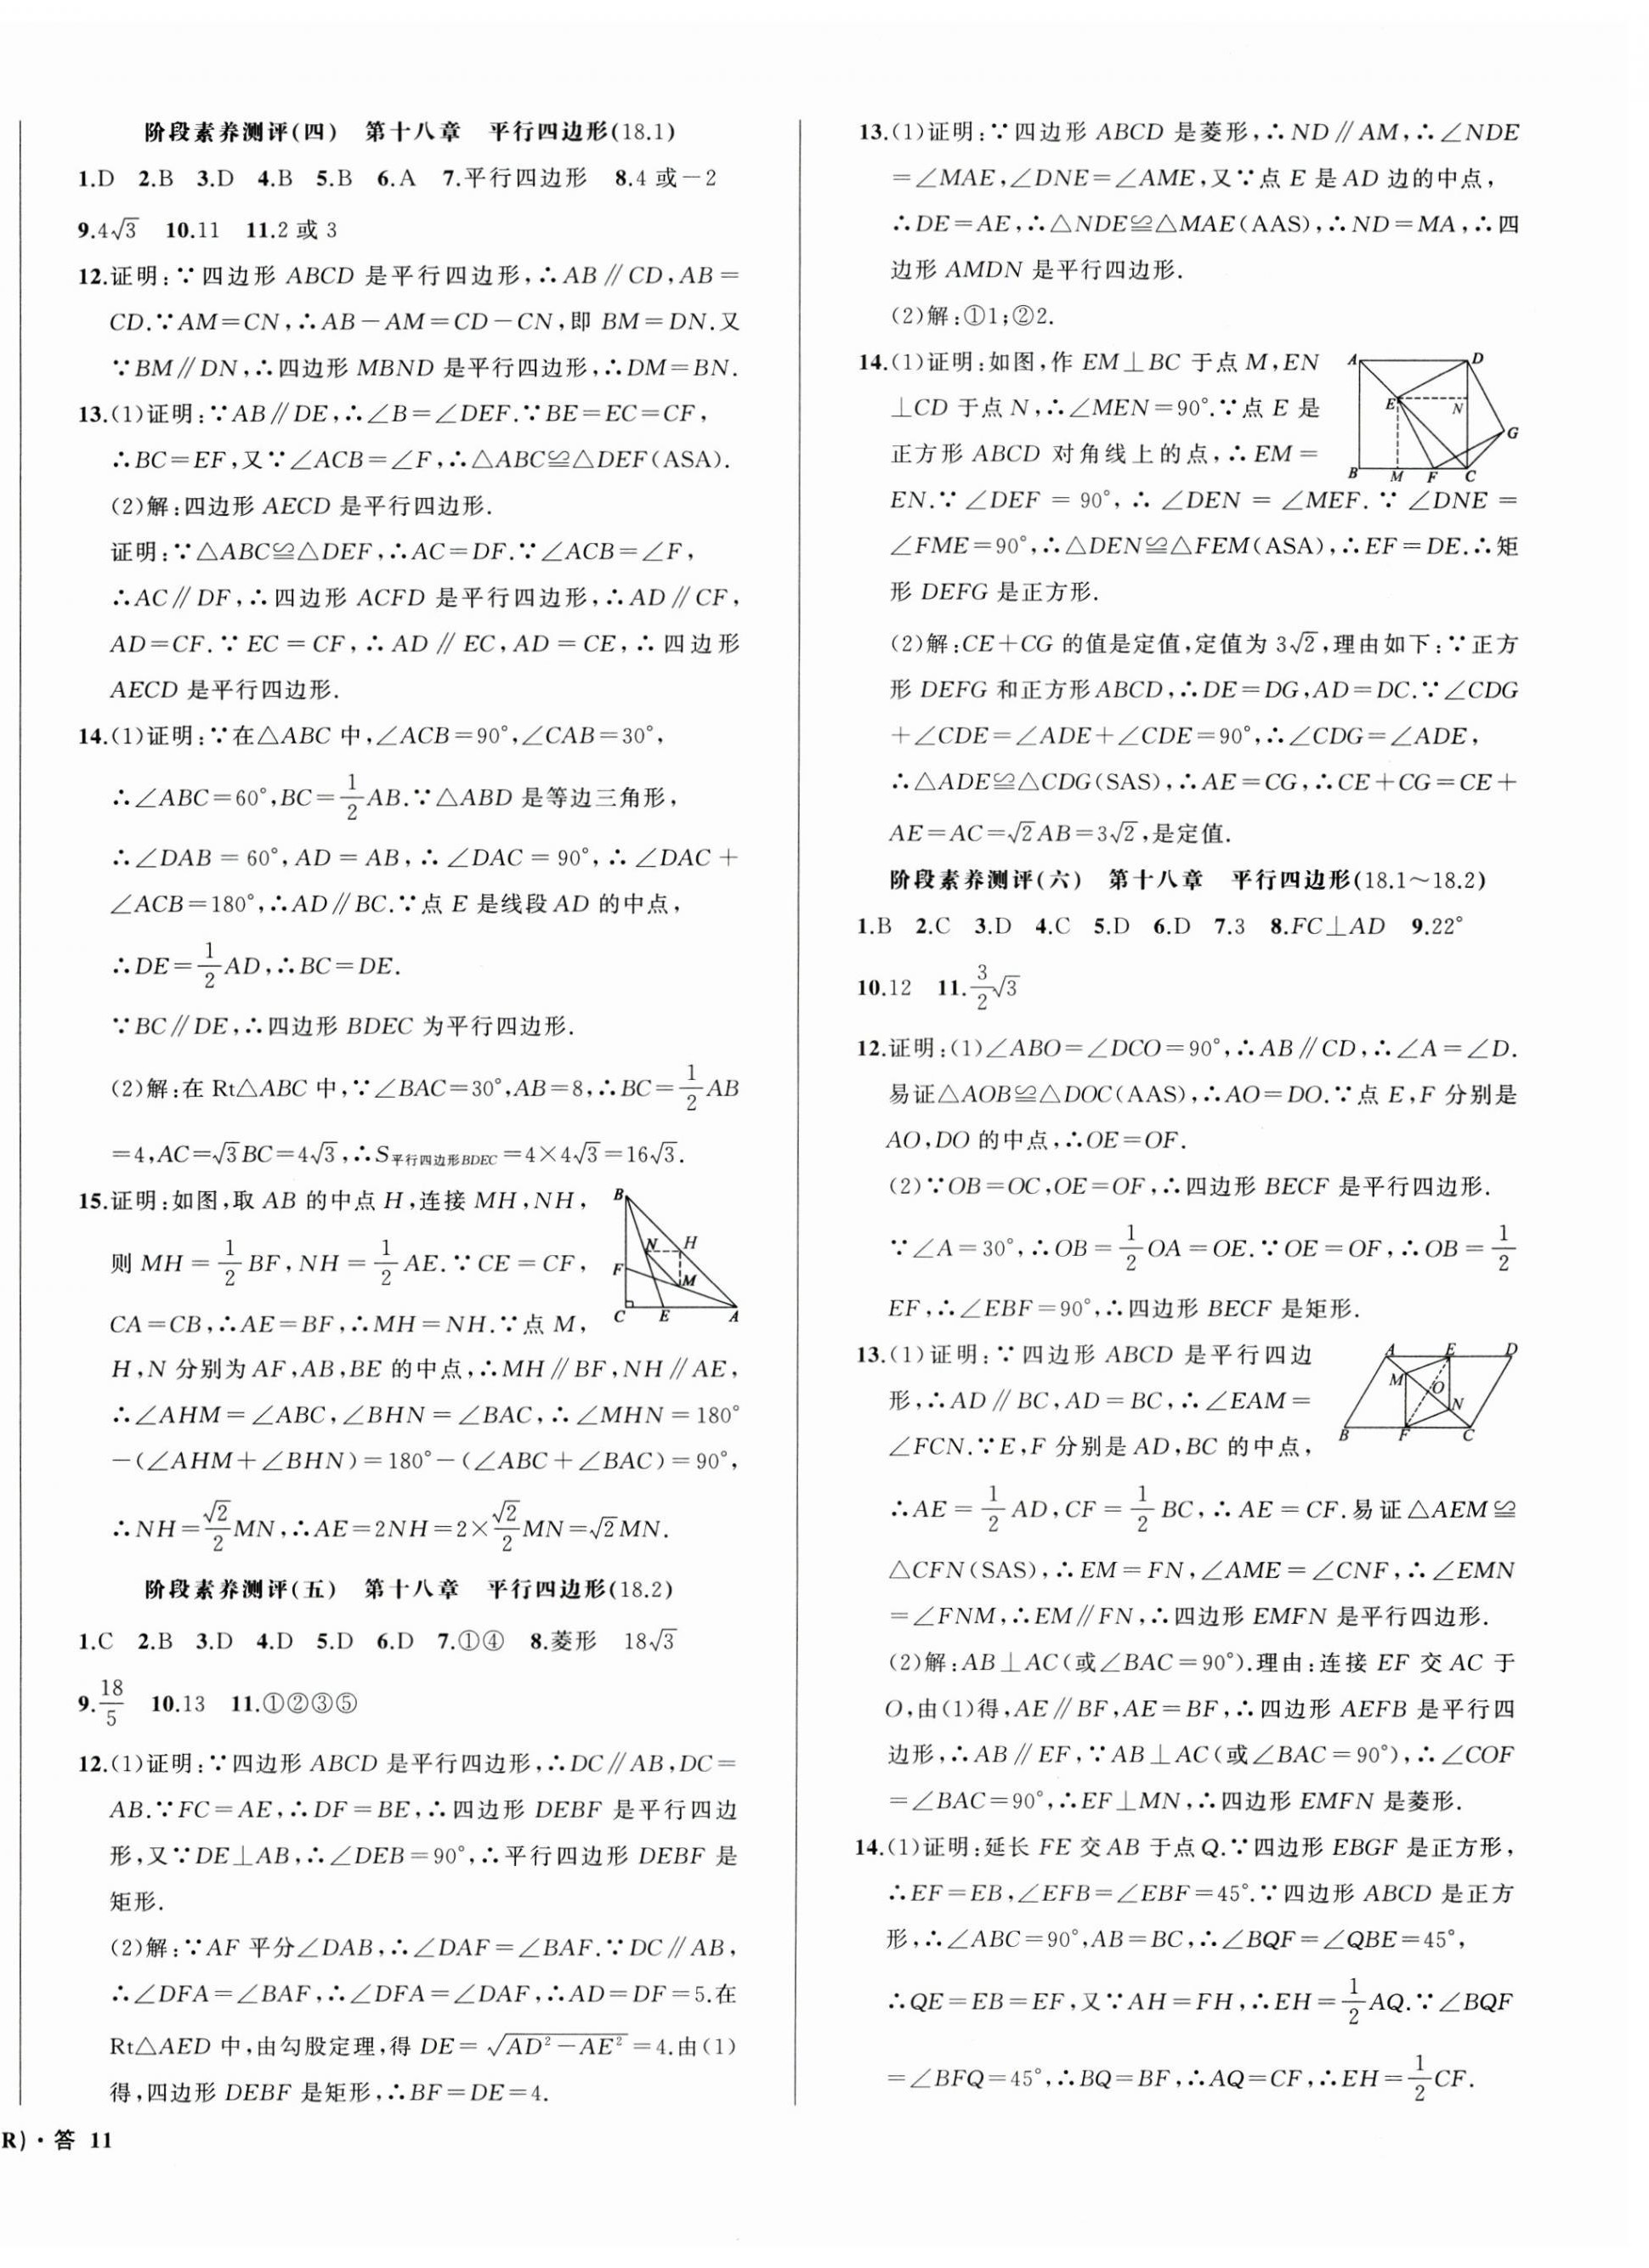 阶段素养测评(四) 第十八章 平行四边形(18.1)
1.D 2.B 3.D 4.B 5.B 6.A 7.平行四边形 8.4或-2
9.4√3 10.11 11.2或3
12.证明:∵四边形ABCD是平行四边形,∴AB∥CD,AB=
CD.∵AM=CN,∴AB-AM=CD-CN,即BM=DN.又
∵BM∥DN,∴四边形MBND是平行四边形,∴DM=BN.
13.(1)证明:∵AB∥DE,∴∠B=∠DEF.∵BE=EC=CF,
∴BC=EF,又∵∠ACB=∠F,∴△ABC≌△DEF(ASA).
(2)解:四边形AECD是平行四边形.
证明:∵△ABC≌△DEF,∴AC=DF.∵∠ACB=∠F,
∴AC∥DF,∴四边形ACFD是平行四边形,∴AD∥CF,
AD=CF.∵EC=CF,∴AD∥EC,AD=CE,∴四边形
AECD是平行四边形.
14.(1)证明:∵在△ABC中,∠ACB=90°,∠CAB=30°,
∴∠ABC=60°,BC=1/2AB.∵△ABD是等边三角形,
∴∠DAB=60°,AD=AB,∴∠DAC=90°,∴∠DAC+
∠ACB=180°,∴AD∥BC.∵点E是线段AD的中点,
∴DE=1/2AD,∴BC=DE.
∵BC∥DE,∴四边形BDEC为平行四边形.
(2)解:在Rt△ABC中,∵∠BAC=30°,AB=8,∴BC=1/2AB
=4,AC=√3BC=4√3,∴S平行四边形BDEC=4×4√3=16√3.
15.证明:如图,取AB的中点H,连接MH,NH,
则MH=1/2BF,NH=1/2AE.∵CE=CF,
CA=CB,∴AE=BF,∴MH=NH.∵点M,
B
N H
F M
C E A
H,N分别为AF,AB,BE的中点,∴MH∥BF,NH∥AE,
∴∠AHM=∠ABC,∠BHN=∠BAC,∴∠MHN=180°
-(∠AHM+∠BHN)=180°-(∠ABC+∠BAC)=90°,
∴NH=√2/2MN,∴AE=2NH=2×√2/2MN=√2MN.
阶段素养测评(五) 第十八章 平行四边形(18.2)
1.C 2.B 3.D 4.D 5.D 6.D 7.①④ 8.菱形 18√3
9.18/5 10.13 11.①②③⑤
12.(1)证明:∵四边形ABCD是平行四边形,∴DC∥AB,DC=
AB.∵FC=AE,∴DF=BE,∴四边形DEBF是平行四边
形,又∵DE⊥AB,∴∠DEB=90°,∴平行四边形DEBF是
矩形.
(2)解:∵AF平分∠DAB,∴∠DAF=∠BAF.∵DC∥AB,
∴∠DFA=∠BAF,∴∠DFA=∠DAF,∴AD=DF=5.在
Rt△AED中,由勾股定理,得DE=√(AD²-AE²)=4.由(1)
得,四边形DEBF是矩形,∴BF=DE=4.
R)·答 11
13.(1)证明:∵四边形ABCD是菱形,∴ND∥AM,∴∠NDE
=∠MAE,∠DNE=∠AME,又∵点E是AD边的中点,
∴DE=AE,∴△NDE≌△MAE(AAS),∴ND=MA,∴四
边形AMDN是平行四边形.
(2)解:①1;②2.
14.(1)证明:如图,作EM⊥BC于点M,EN
⊥CD于点N,∴∠MEN=90°.∵点E是
正方形ABCD对角线上的点,∴EM=
A D
E N
G
B M F C
EN.∵∠DEF=90°,∴∠DEN=∠MEF.∵∠DNE=
∠FME=90°,∴△DEN≌△FEM(ASA),∴EF=DE.∴矩
形DEFG是正方形.
(2)解:CE+CG的值是定值,定值为3√2,理由如下:∵正方
形DEFG和正方形ABCD,∴DE=DG,AD=DC.∵∠CDG
+∠CDE=∠ADE+∠CDE=90°,∴∠CDG=∠ADE,
∴△ADE≌△CDG(SAS),∴AE=CG,∴CE+CG=CE+
AE=AC=√2AB=3√2,是定值.
阶段素养测评(六) 第十八章 平行四边形(18.1～18.2)
1.B 2.C 3.D 4.C 5.D 6.D 7.3 8.FC⊥AD 9.22°
10.12 11.3/2√3
12.证明:(1)∠ABO=∠DCO=90°,∴AB∥CD,∴∠A=∠D.
易证△AOB≌△DOC(AAS),∴AO=DO.∵点E,F分别是
AO,DO的中点,∴OE=OF.
(2)∵OB=OC,OE=OF,∴四边形BECF是平行四边形.
∵∠A=30°,∴OB=1/2OA=OE.∵OE=OF,∴OB=1/2
EF,∴∠EBF=90°,∴四边形BECF是矩形.
13.(1)证明:∵四边形ABCD是平行四边
形,∴AD∥BC,AD=BC,∴∠EAM=
∠FCN.∵E,F分别是AD,BC的中点,
A E D
M O
N
B F C
∴AE=1/2AD,CF=1/2BC,∴AE=CF.易证△AEM≌
△CFN(SAS),∴EM=FN,∠AME=∠CNF,∴∠EMN
=∠FNM,∴EM∥FN,∴四边形EMFN是平行四边形.
(2)解:AB⊥AC(或∠BAC=90°).理由:连接EF交AC于
O,由(1)得,AE∥BF,AE=BF,∴四边形AEFB是平行四
边形,∴AB∥EF,∵AB⊥AC(或∠BAC=90°),∴∠COF
=∠BAC=90°,∴EF⊥MN,∴四边形EMFN是菱形.
14.(1)证明:延长FE交AB于点Q.∵四边形EBGF是正方形,
∴EF=EB,∠EFB=∠EBF=45°.∵四边形ABCD是正方
形,∴∠ABC=90°,AB=BC,∴∠BQF=∠QBE=45°,
∴QE=EB=EF,又∵AH=FH,∴EH=1/2AQ.∵∠BQF
=∠BFQ=45°,∴BQ=BF,∴AQ=CF,∴EH=1/2CF.